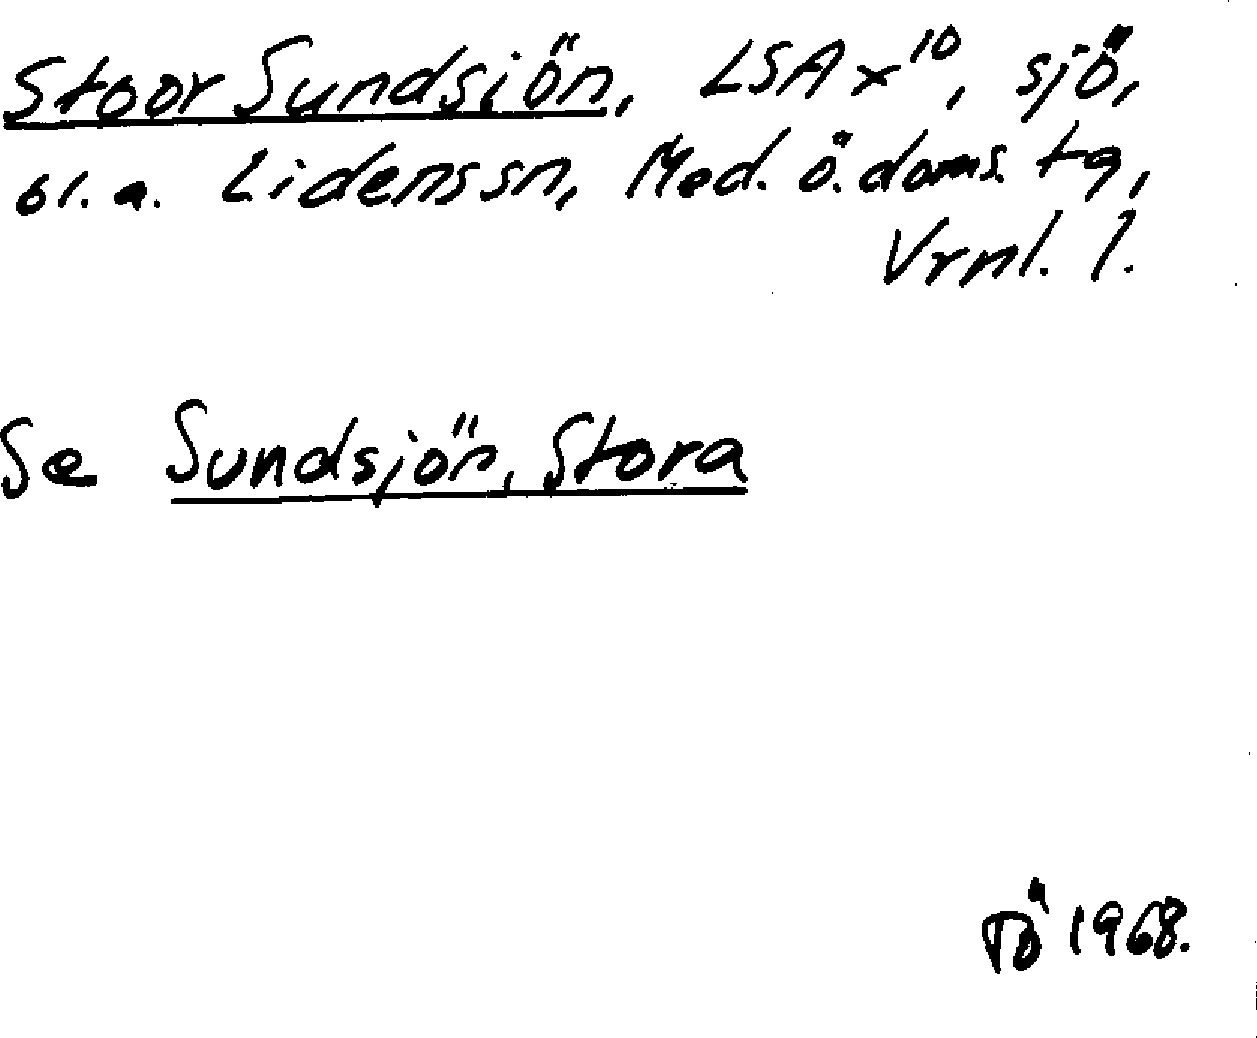 Stoor Sundsiön, LSA x¹⁰, sjö,
bl. a. Lidens sn, Med. ö. doms. tg,
Vrnl. l.
Se Sundsjön, Stora
TÖ 1968.